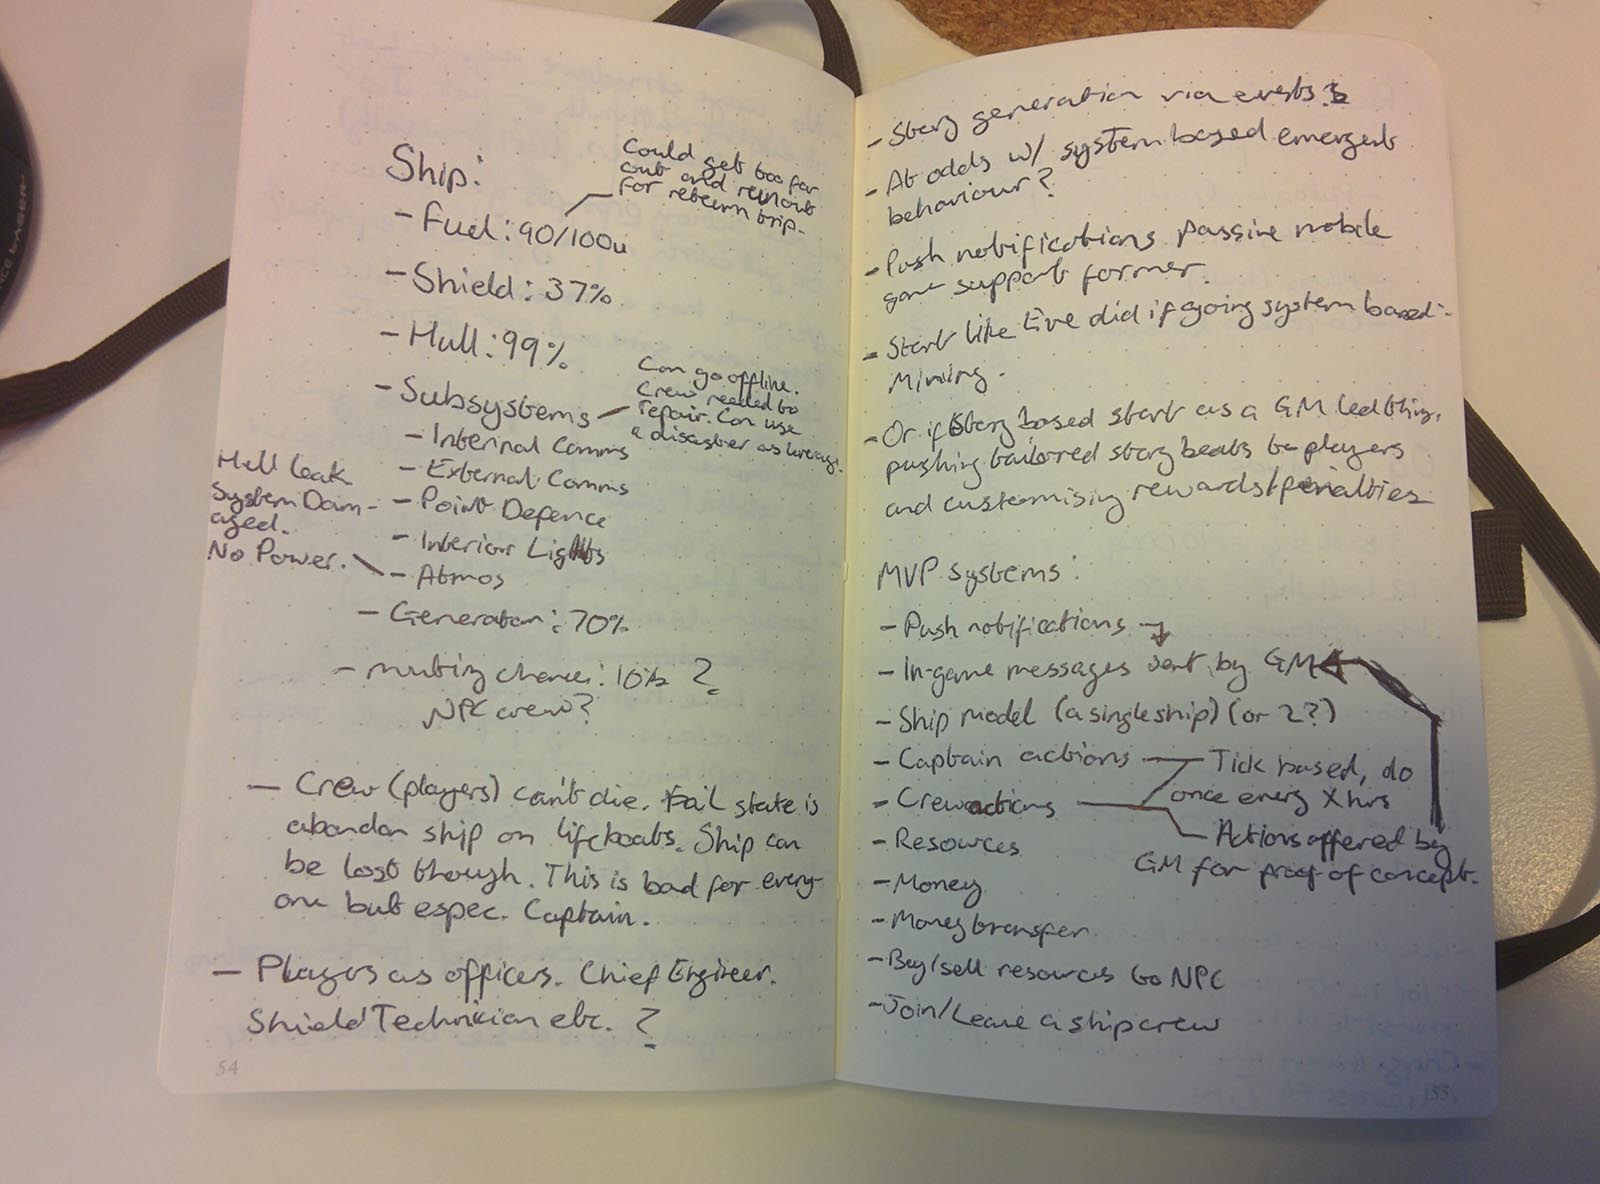 Ship:
Could get too far
out and run out
for return trip.
- Fuel: 90/100u
- Shield: 37%
- Hull: 99%
- Subsystems
Can go offline.
Crew needed to
repair. Can use
a disaster as leverage.
- Internal Comms
- External Comms
- Point Defence
- Interior Lights
- Atmos
Hull leak
System Dam-
aged.
No Power.
- Generator: 70%
- mutiny chance: 10% ?
NPC crew?
- Crew (players) can't die. Fail state is
abandon ship on lifeboats. Ship can
be lost though. This is bad for every-
one but espec. Captain.
- Players as officers. Chief Engineer.
Shield Technician etc. ?
54
- Story generation via events?
- At odds w/ system based emergent
behaviour?
- Push notifications passive mobile
game support former.
- Start like Eve did if going system based -
Mining.
- Or if story based start as a GM led thing,
pushing tailored story beats to players
and customising rewards/penalties
MVP systems:
- Push notifications
- In-game messages sent by GM
- Ship model (a single ship) (or 2?)
- Captain actions
- Tick based, do
once every X hrs
- Crew actions
- Actions offered by
GM for proof of concept.
- Resources
- Money
- Money transfer
- Buy/sell resources to NPC
- Join/Leave a ship crew
55